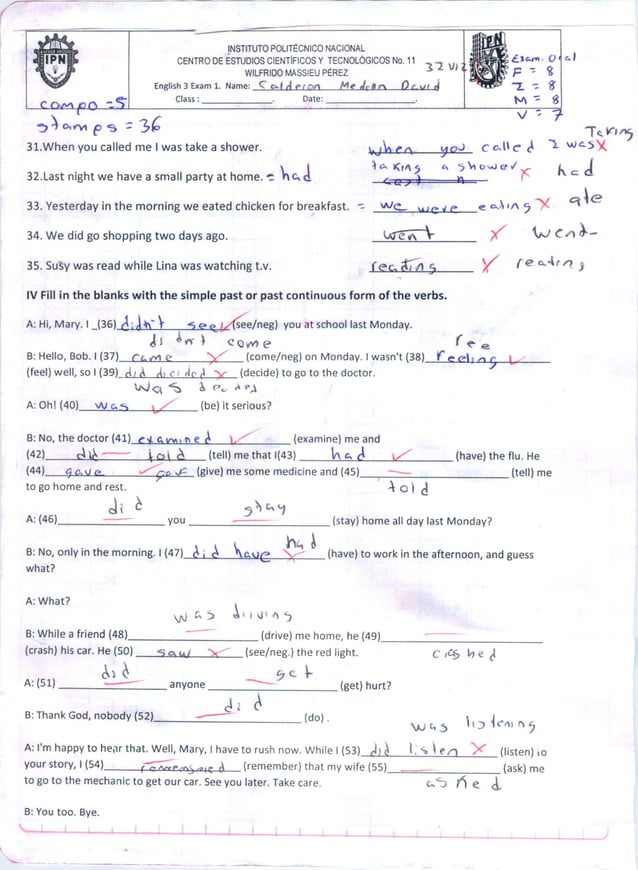 INSTITUTO POLITÉCNICO NACIONAL
CENTRO DE ESTUDIOS CIENTÍFICOS Y TECNOLÓGICOS No. 11
WILFRIDO MASSIEU PÉREZ
English 3 Exam 1. Name: Calderon Medellin David
Class : ______________. Date: ________________.
IPN
IPN
Exam. Oral
F = 8
I = 8
M = 8
V = 7
compo = 5
stamps = 36
Taking
31.When you called me I was take a shower. when you called I was x
taking a shower x
32.Last night we have a small party at home. = had had
33. Yesterday in the morning we eated chicken for breakfast. = we were eating x ate
34. We did go shopping two days ago. went x went
35. Susy was read while Lina was watching t.v. reading x reading
IV Fill in the blanks with the simple past or past continuous form of the verbs.
A: Hi, Mary. I _(36) didn't see (see/neg) you at school last Monday.
didn't come fee
B: Hello, Bob. I (37) came x (come/neg) on Monday. I wasn't (38) feeling
(feel) well, so I (39) did dicided x (decide) to go to the doctor.
was decided
A: Oh! (40) was (be) it serious?
B: No, the doctor (41) examined (examine) me and
(42) did told (tell) me that I(43) had (have) the flu. He
(44) gave gave (give) me some medicine and (45) (tell) me
to go home and rest. told
did stay
A: (46) you (stay) home all day last Monday?
had
B: No, only in the morning. I (47) did have x (have) to work in the afternoon, and guess
what?
A: What?
was driving
B: While a friend (48) (drive) me home, he (49)
(crash) his car. He (50) saw x (see/neg.) the red light. crashed
did get
A: (51) anyone (get) hurt?
did
B: Thank God, nobody (52) (do) .
was listening
A: I'm happy to hear that. Well, Mary, I have to rush now. While I (53) did listen x (listen) to
your story, I (54) (remember) that my wife (55) (ask) me
to go to the mechanic to get our car. See you later. Take care. asked
B: You too. Bye.